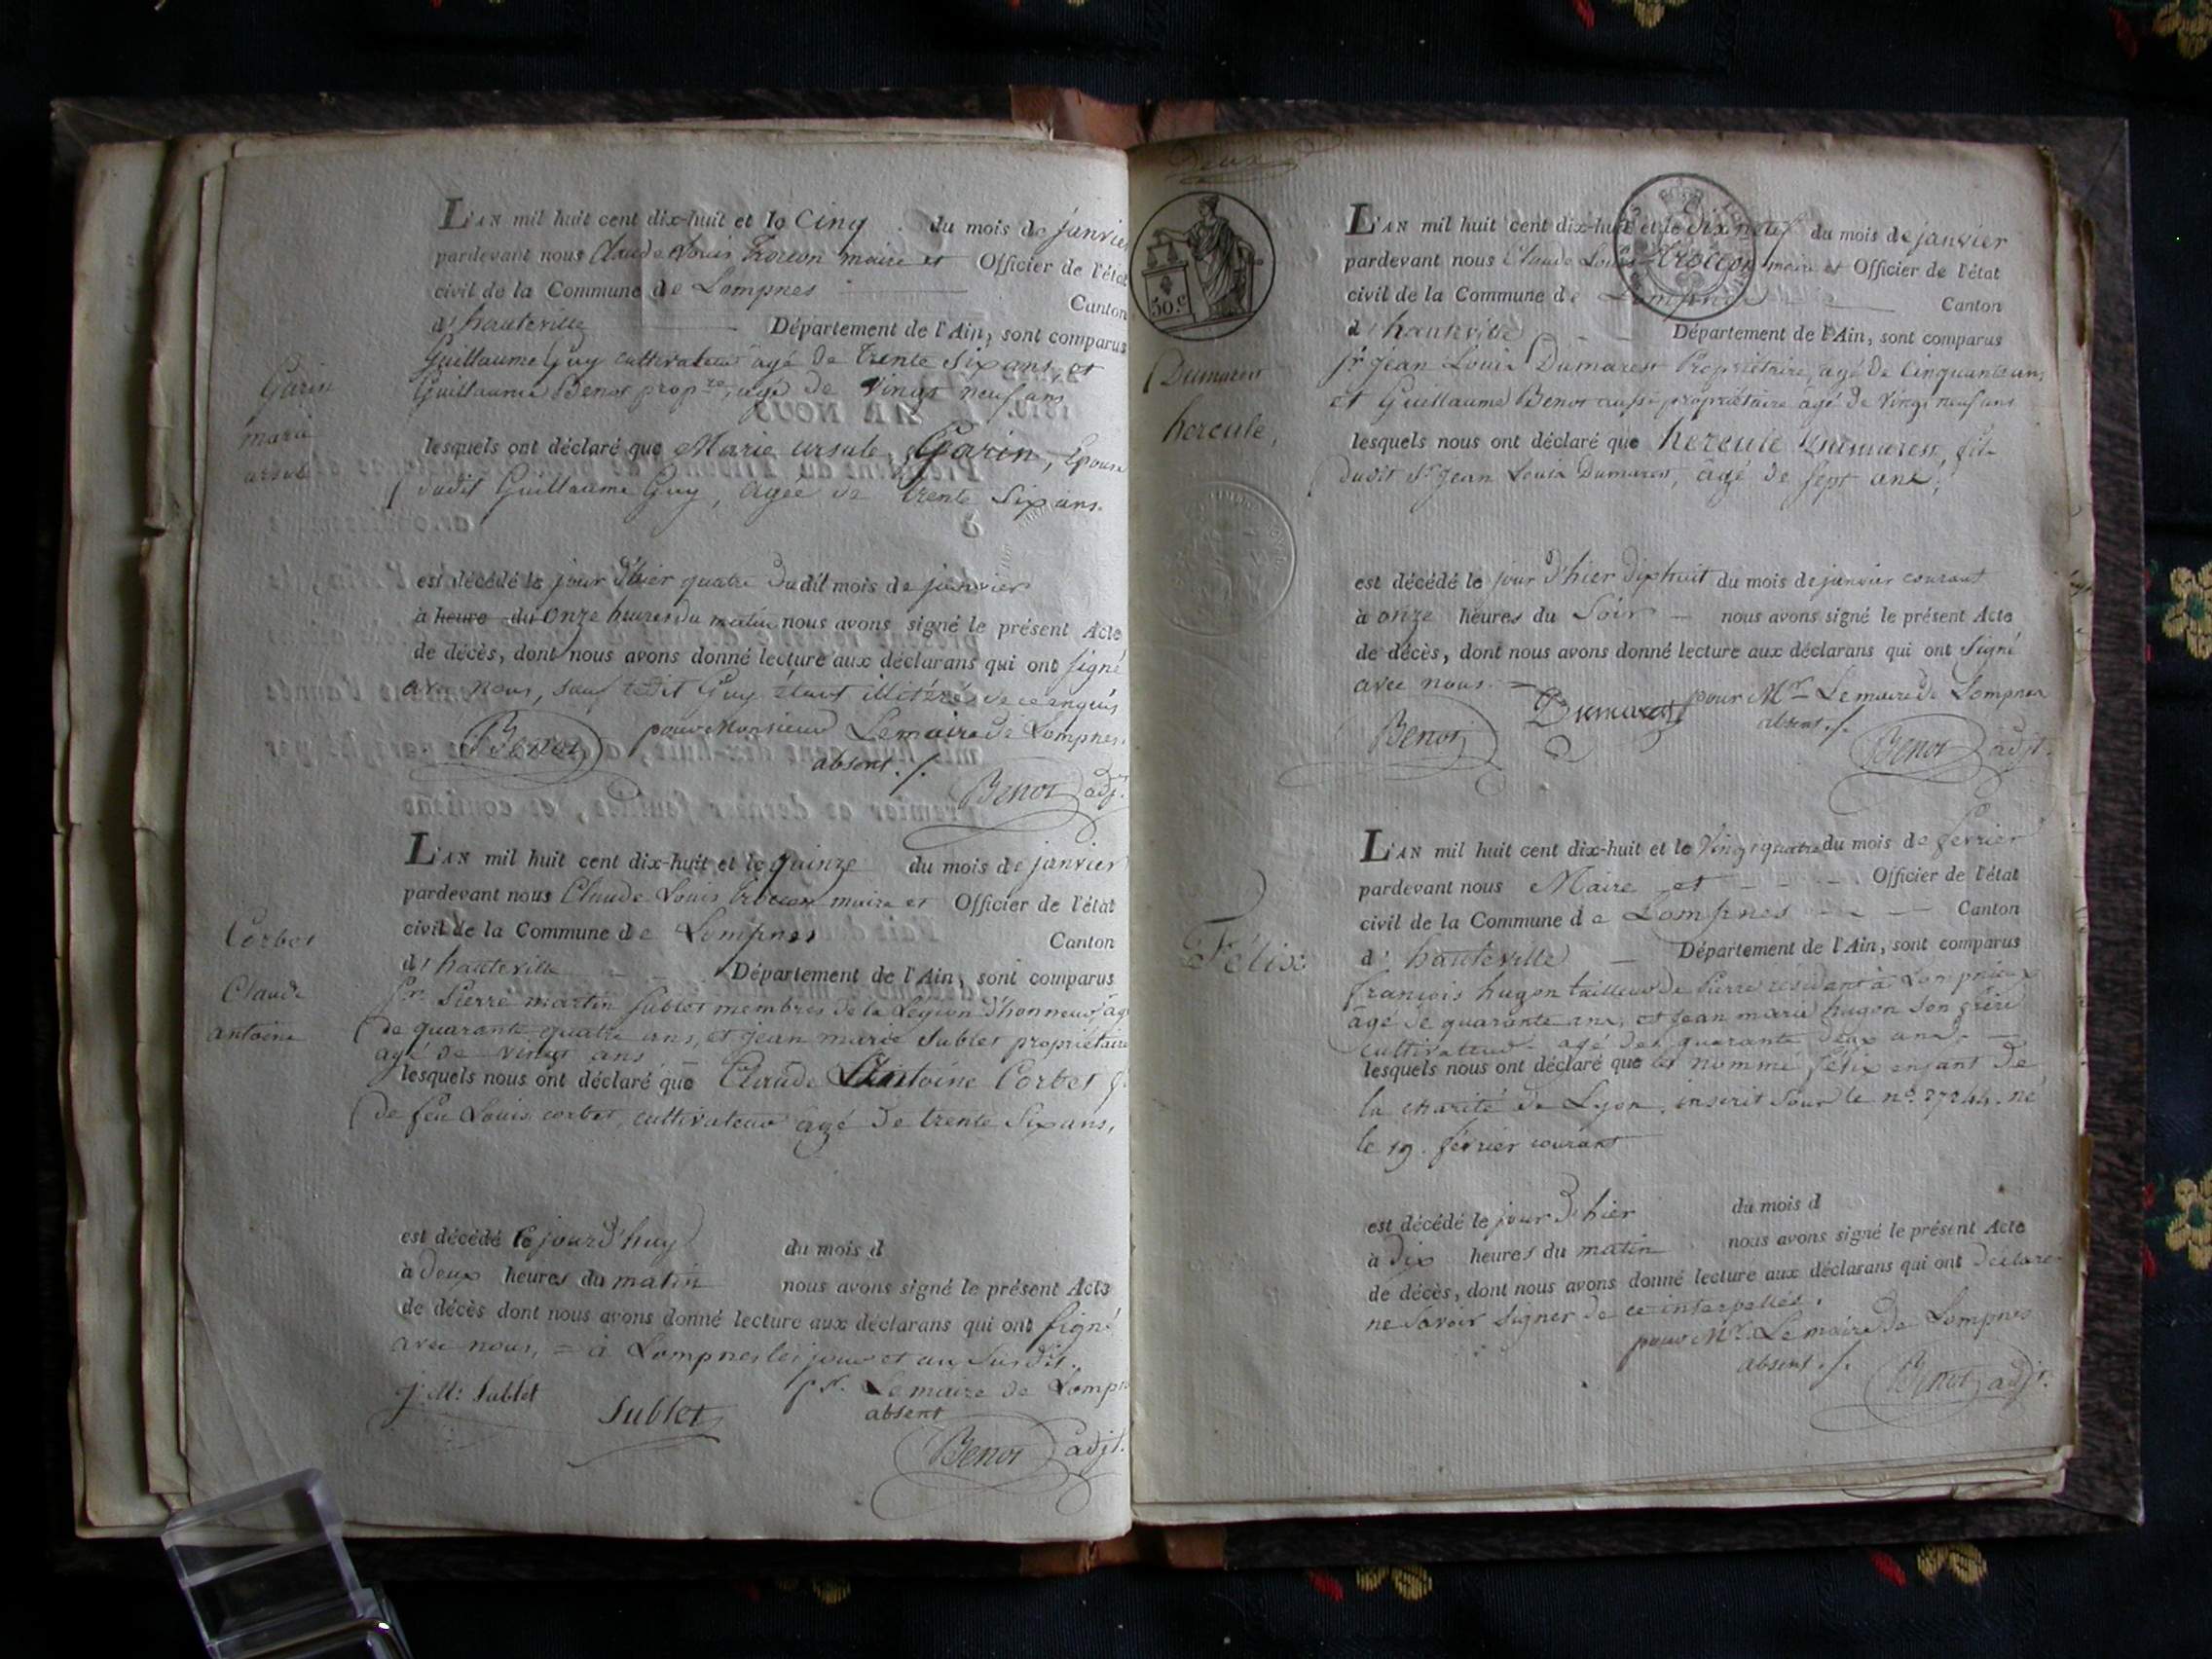 L'AN mil huit cent dix-huit et le Cinq du mois de janvier
pardevant nous Claude Louis Trocon maire et Officier de l'état
civil de la Commune de Lompnes
Canton
d'hauteville Département de l'Ain, sont comparus
Guillaume Guy cultivateur agé de trente Six ans, et
Guillaume Benot propre, agé de Vingt neuf ans
Garin
marie
ursule
lesquels ont déclaré que Marie ursule Garin, Epouse
dudit Guillaume Guy, agée de trente Six ans.
est décédé le jour d'hier quatre dudit mois de janvier
à heure du Onze heures du matin nous avons signé le présent Acte
de décès, dont nous avons donné lecture aux déclarans qui ont signé
avec nous, sauf ledit Guy étant illitéré de ce enquis
Benot pour Monsieur Lemaire de Lompnes
absent ./.
Benot adj.
L'AN mil huit cent dix-huit et le quinze du mois de janvier
pardevant nous Claude Louis Trocon maire et Officier de l'état
civil de la Commune de Lompnes
Canton
d'hauteville Département de l'Ain, sont comparus
Corbet
Claude
antoine
Sr. Pierre martin Sublet membres de la Legion d'honneur agé
de quarante quatre ans, et jean marie Sublet propriétaire
agé de vingt ans
lesquels nous ont déclaré que Claude Antoine Corbet f.
de feu Louis corbet, cultivateur agé de trente Six ans,
est décédé le jourd'huy du mois d
à deux heures du matin nous avons signé le présent Acte
de décès dont nous avons donné lecture aux déclarans qui ont signé
avec nous, = à Lompnes les jour et an Susdit.
J. M: Sublet Sublet pr. Lemaire de Lompnes
absent
Benot adjt.
Deux
50.c
L'AN mil huit cent dix-huit et le dix neuf du mois de janvier
pardevant nous Claude Louis Trocon maire et Officier de l'état
civil de la Commune de Lompnes Canton
d'hauteville Département de l'Ain, sont comparus
Dumarest
hercule,
Sr Jean Louis Dumarest Propriétaire, agé de Cinquante un,
et Guillaume Benot aussi propriétaire agé de Vingt neuf ans
lesquels nous ont déclaré que hercule Dumarest, fils
dudit Sr. Jean Louis Dumarest, agé de Sept ans,
est décédé le jour d'hier dixhuit du mois de janvier courant
à onze heures du Soir nous avons signé le présent Acte
de décès, dont nous avons donné lecture aux déclarans qui ont Signé
avec nous. = pour Mr. Lemaire de Lompnes
Benot Dumarest absent ./.
Benot adjt.
L'AN mil huit cent dix-huit et le Vingt quatre du mois de février
pardevant nous Maire et Officier de l'état
civil de la Commune de Lompnes Canton
d'hauteville Département de l'Ain, sont comparus
Félix
françois hugon tailleur de Pierre residant à Lompnieux
âgé de quarante ans, et Jean marie hugon Son frère
cultivateur agé de quarante deux ans.
lesquels nous ont déclaré que le nommé félix enfant de
la charité de Lyon, inscrit Sour le no. 27244. né
le 19. février courant
est décédé le jour d'hier du mois d
à dix heures du matin nous avons signé le présent Acte
de décès, dont nous avons donné lecture aux déclarans qui ont déclaré
ne Savoir Signer de ce interpellés.
pour Mr. Lemaire de Lompnes
absent ./.
Benot adjt.